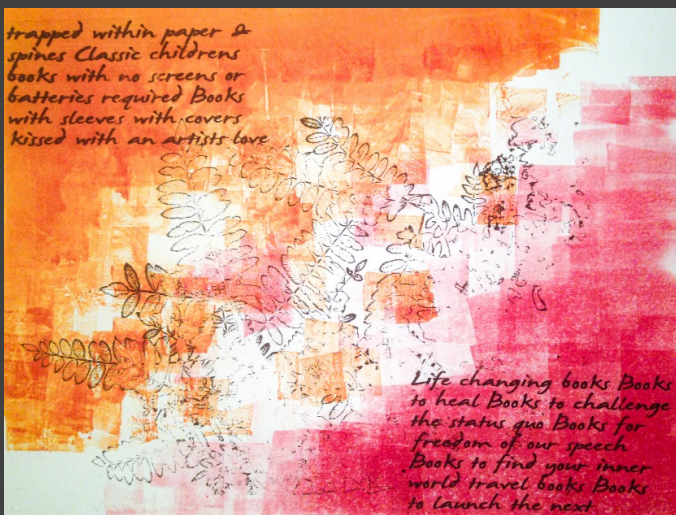 trapped within paper &
spines Classic childrens
books with no screens or
batteries required Books
with sleeves with covers
kissed with an artists love
Life changing books Books
to heal Books to challenge
the status quo Books for
freedom of our speech
Books to find your inner
world travel books Books
to launch the next